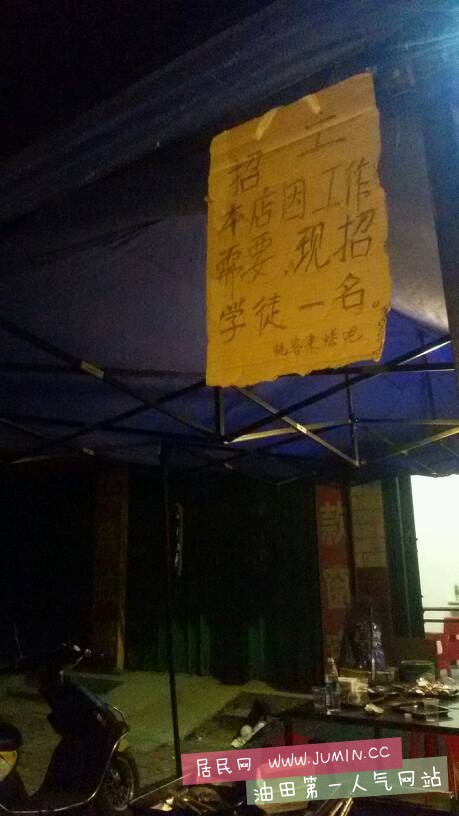 招工
本店因工作
需要、现招
学徒一名。
晓客来烧吧
款
居民网 WWW.JUMIN.CC
油田第一人气网站